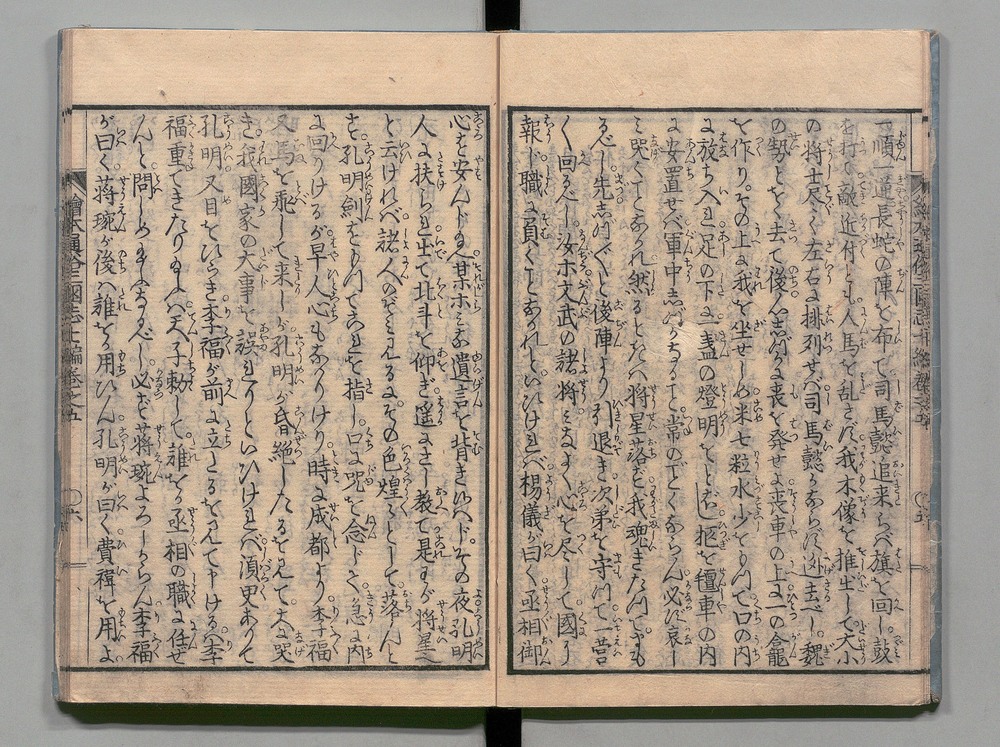 一順一逆長蛇の陣を布て司馬懿追来らバ旗を回し鼓
を打て敵近付とも人馬を乱さず我木像を推出して大小
の将士尽く左右に排列せバ司馬懿かならず迯去べし魏
の勢とをく去て後人志づかに喪を発せよ喪車の上に一の龕
を作りその上に我を坐せしめ米七粒水少しをもつて口の内
に放ち入れ足の下に一盞の燈明をとぼし柩を氈車の内
に安置せバ軍中志づかなること常のごとくならん必ず哀し
み哭くことなかれ然るときハ将星落ず我魂きたつてまもる
べし先志づ〱と後陣より引退き次第を守つて一営〱
く回るべし汝ホ文武の諸将みなよく心を尽して国に
報ひ職に負くことなかれといひけれバ楊儀が曰く丞相御
心を安んじ玉へ某ホミな遺言を背き候ハじその夜孔明
人に扶けられ出て北斗を仰ぎ遥にさし教て是すなハち我が将星也
と云けれバ諸人のぞミ見るにその色煌々として落んと
す孔明剣をもつてこれを指し口に咒を念じさて急に内
に回りけるが早人心もなかりけり時に成都より李福
又馬を飛して来しが孔明が昏絶したるを見て大に哭
き我國家の大事を誤れりといひけれバ須臾ありて
孔明又目をひらき李福が前に立たるを見て申けるハ李
福重てきたり玉ふハ天子勅して誰か丞相の職に任せ
んと問しめ玉ふなるべし必ず蒋琬よろしからん李福
が曰く蒋琬が後ハ誰を用ひん孔明が曰く費禕を用よ
繪本通俗三國志七編巻之五